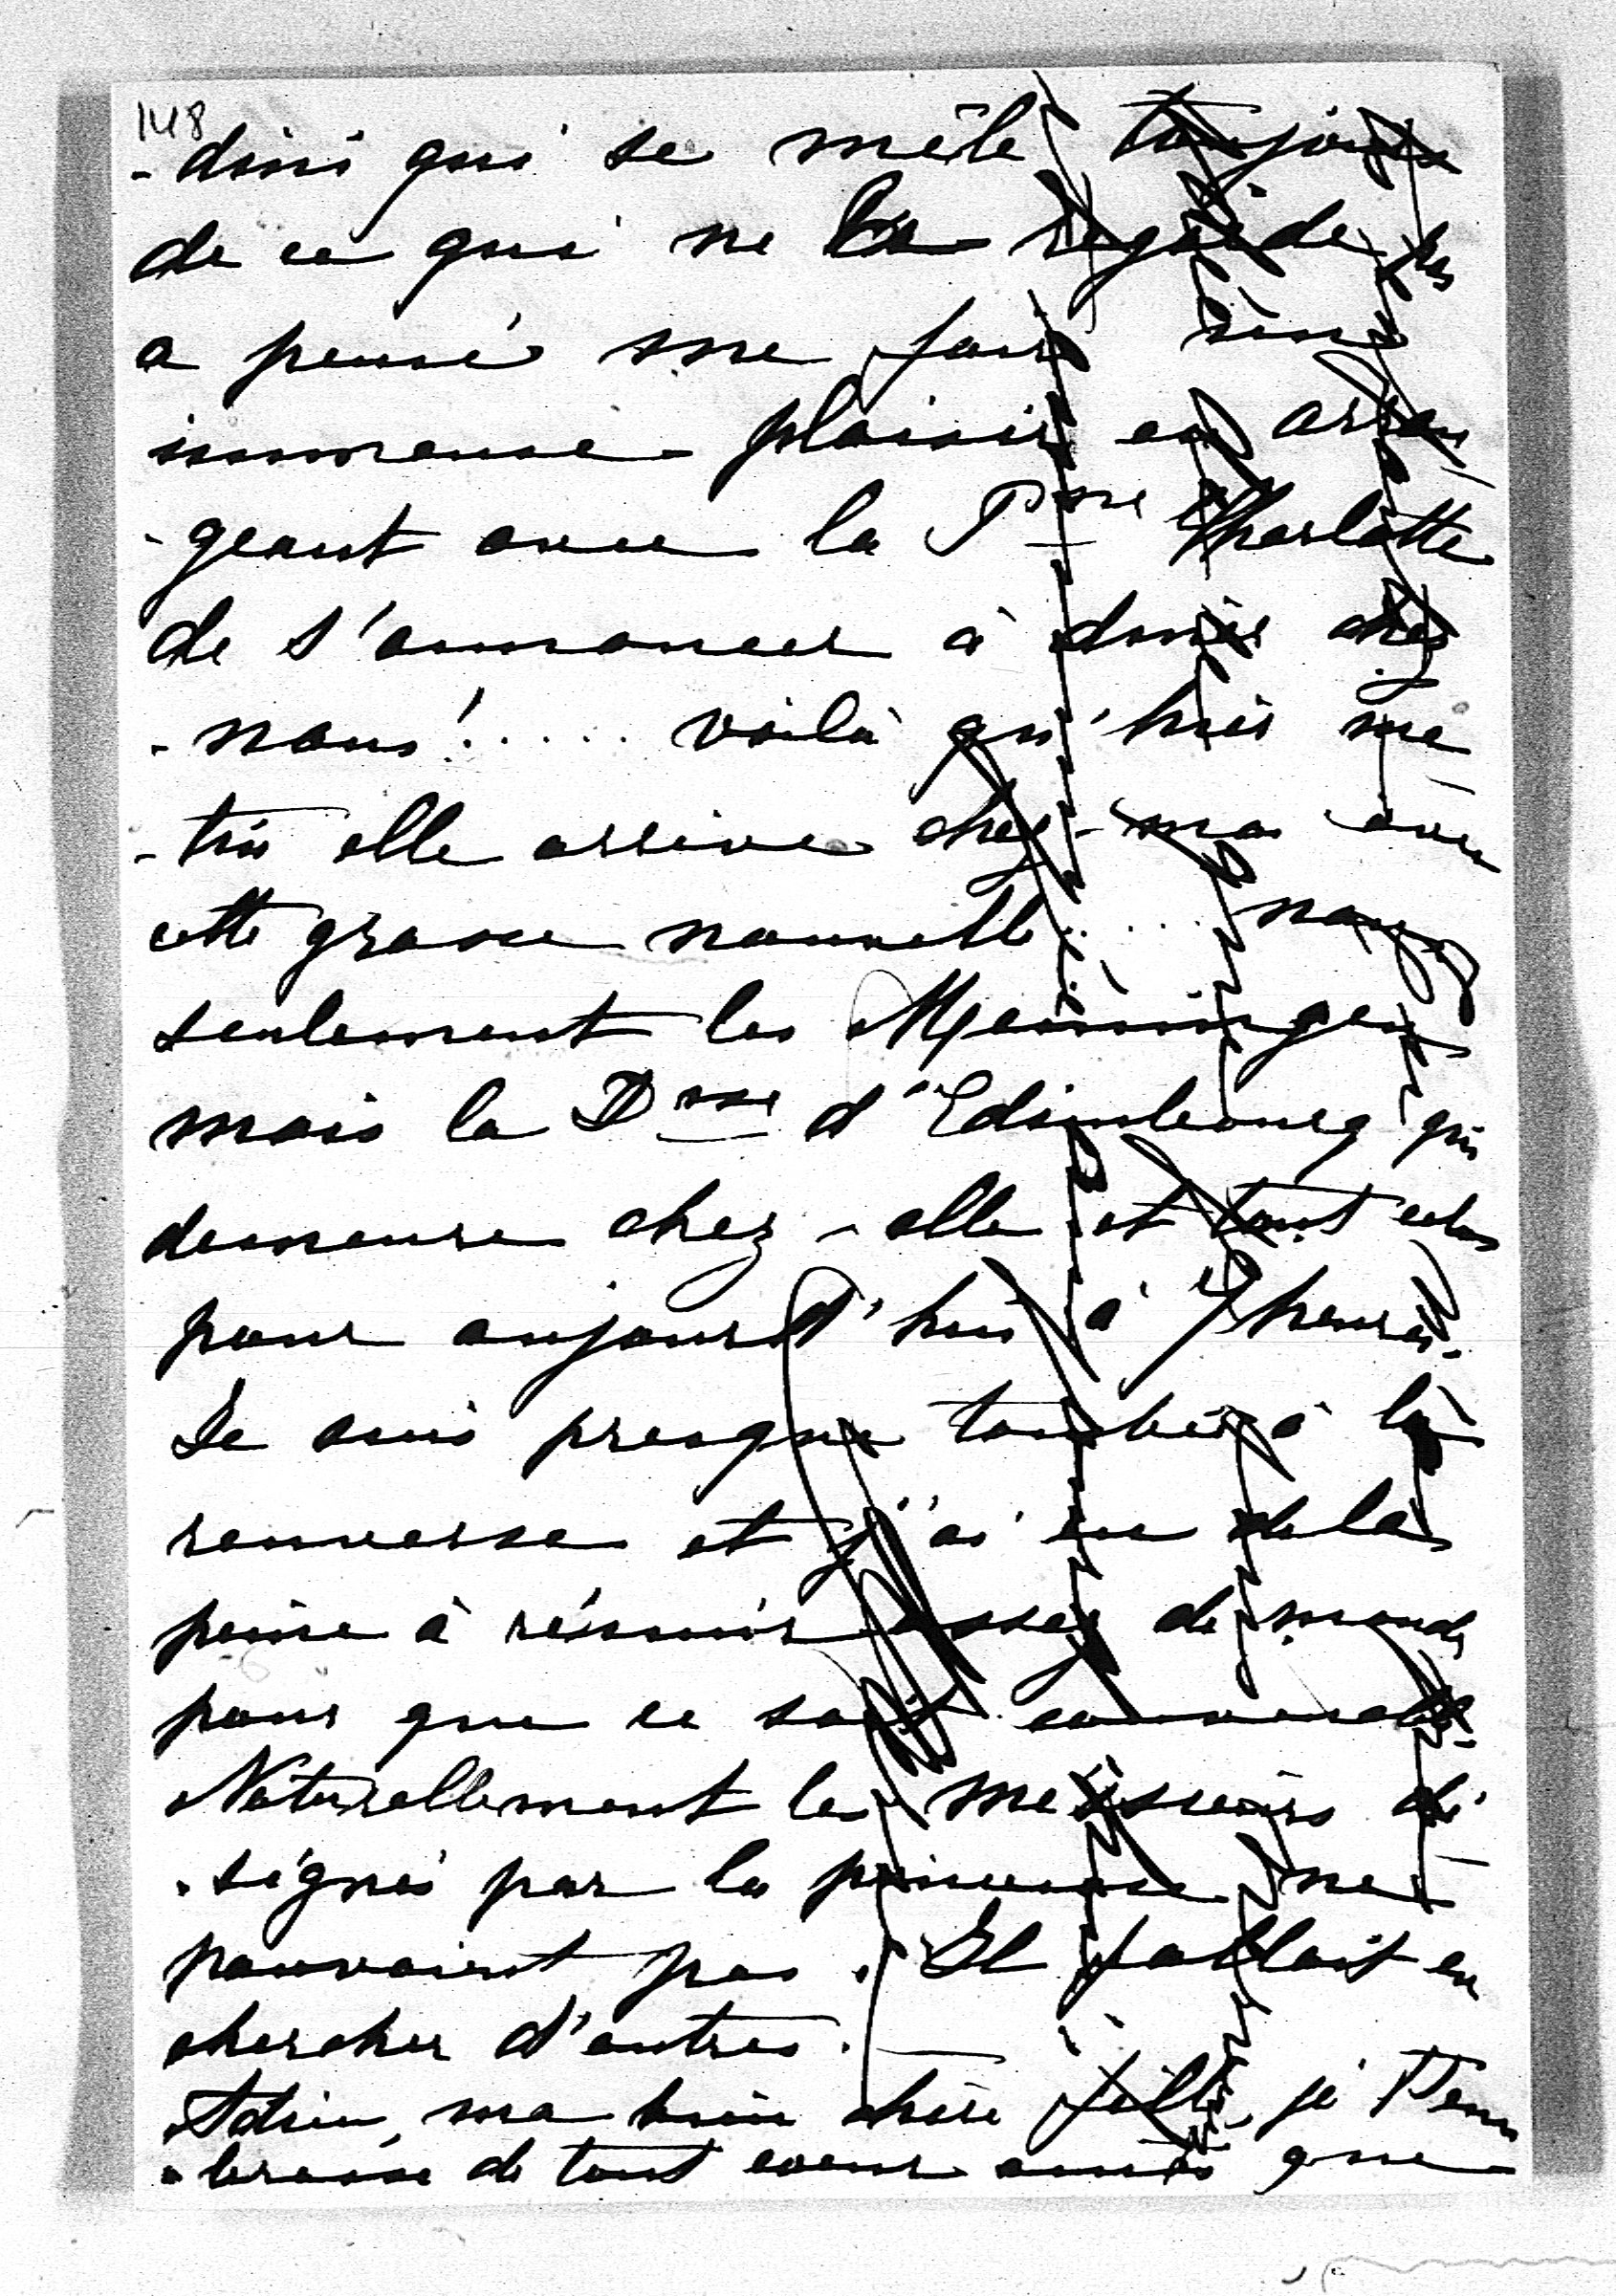 148
-dini qui se mêle toujours
de ce qui ne la regarde pas
a pensé me faire une
immense plaisir en arran
-geant avec la Psse Charlotte
de s'annoncer à dîner chez
-nous!..... voilà qu'hier ma
-tin elle arrive chez-moi avec
cette grave nouvelle.....non
seulement les Meiningen
mais la Dsse d'Edimbourg qui
demeure chez-elle et tout cela
pour aujourd'hui à 7 heures.
Je suis presque tombée à la
renverse et j'ai eu de la
peine à réunir assez de monde
pour que ce soit convenable.
Naturellement les messieurs dé
-signés par la princesse ne
pouvaient pas. Il fallait en
chercher d'autres.
Adieu, ma bien chère fille, je t'em
-brasse de tout coeur ainsi que